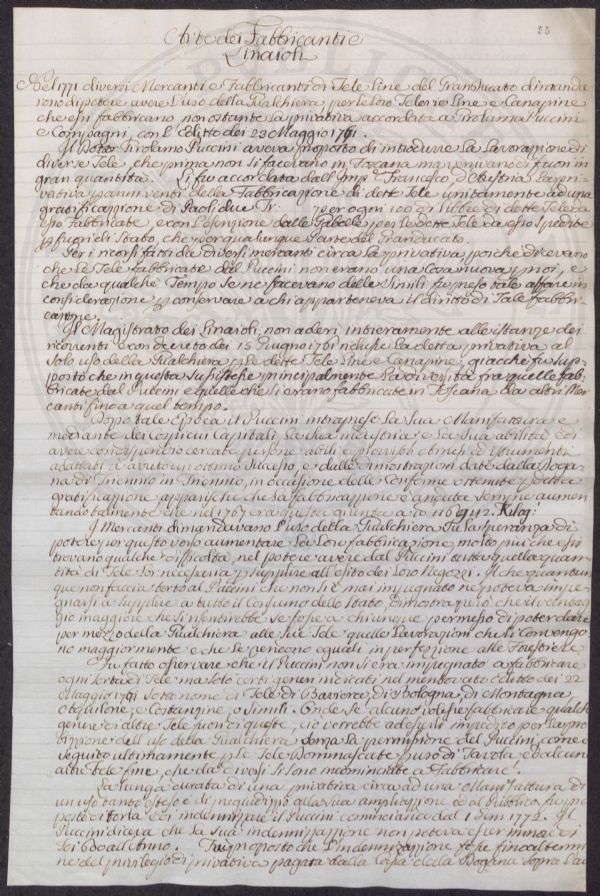 55
Arte dei Fabbricanti e
Linaioli
Nel 1771 diversi Mercanti e Fabbricanti di Tele Line del Granducato dimanda-
rono di potere avere l'uso della Gualchiera per le loro Telerie Line e Canapine
che essi fabbricano non ostante la privativa accordata a Girolamo Puccini
e Compagni, con l'Editto dei 23 Maggio 1761.
Il detto Girolamo Puccini aveva proposto di introdurre la Lavorazione di
diverse Tele, che prima non si facevano in Toscana ma venivano di fuori in
gran quantità. Li fu accordata dall' Francesco la pri-
vativa p anni venti della Fabbricazione di dette Tele unitamente ad una
gratificazione di Paoli due per ogni 100 di libbre di dette Tele da
esso fabbricate, e con l'esenzione dalle Gabelle per le dette Tele da esso spedite
p fuori di Stato, che per qualunque Parte del Granducato.
Per i ricorsi fatti da diversi mercanti circa la privativa, poiche dicevano
che le Tele fabbricate dal Puccini non erano una Cosa nuova p noi, e
che da qualche Tempo se ne facevano delle simili fu preso tale affare in
considerazione p conservare a chi apparteneva il diritto di Tale fabbri-
cazione.
Il Magistrato dei Linaioli, non aderì intieramente alle istanze dei
ricorrenti e con decreto dei 15 Giugno 1761 ridusse la detta privativa al
Solo uso della Gualchiera p le dette Tele Line e Canapine, giacche fu sup-
posto che in questa sussistesse principalmente la diversità fra quelle fab-
bricate dal Puccini e quelle che si erano fabbricate in Toscana da altri Mer-
canti fino a quel tempo.
Dopo tale Epoca il Puccini intraprese la Sua Manifattura e
mediante dei Cospicui Capitali, la Sua industria e la Sua abilità e di
avere con dispendio cercate persone abili e ed strumenti
adattati à avuto un ottimo Successo, e dalle dimostrazioni date dalla Doga-
na di Triennio in Triennio, in occasione delle Conferme ottenute p detta
gratificazione apparisce che la fabbricazione è andata Sempre aumen-
tando talmente che nel 1767 era questa giunta a
I Mercanti dimandavano l'uso della Gualchiera Sulla speranza di
potere per questo verso aumentare la loro fabbricazione, molto più che essi
trovano qualche difficoltà, nel potere avere dal Puccini tutta quella quan-
tità di Tele lor necessaria p supplire all'esito dei loro Negozzi. Il che quantun-
que non faccia torto al Puccini che non si è mai impegnato ne poteva impe-
gnarsi a supplire a tutto il Consumo dello Stato, dimostra però che il vantag-
gio maggiore che si sentirebbe se fosse a chiunque permesso di poter dare
per mezzo della Gualchiera alle sue Tele quelle Lavorazioni che si Convengo-
no maggiormente e che le rendono eguali in perfezione alle Forestiere.
Fu fatto osservare che il Puccini non si era impegnato a fabbricare
ogni Sorta di Tele ma Solo certi generi indicati nel mentovato editto dei 22
Maggio 1761 Sotto nome di Tele di Barriere, di Bologna, di Montagna,
e Costanzine, e Simili. Onde Se alcuno volesse fabbricare qualche
genere di altre Tele fuori di queste, ciò verrebbe ad esserli impedito per la proi-
bizione dell'uso della Gualchiera Senza la permissione del Puccini come è
seguito ultimamente p le Tele Dommascate p uso di Tavola e d'alcune
altre Tele fine, che da diversi Si Sono incominciate a Fabbricare.
La lunga durata di una privativa circa ad una Manifattura di
un uso tanto esteso è di pregiudizio alla Sua ampliazione ed al Pubblico, fu pro-
posto di torla e di indennizzare il Puccini cominciando dal 1772. Il
Puccini diceva che la Sua indennizzazione non poteva esser minore di
all'Anno. Fu proposto che l'indennizzazione fosse fino al termi-
ne del privilegio di privativa pagata dalla Cassa della Dogana Sopra